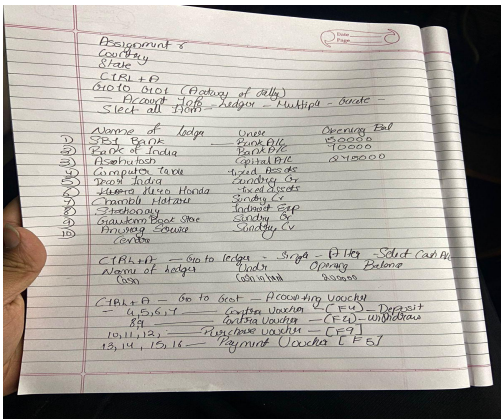 Date
Page
Assignment 8
Country
State
CTRL + A
Goto Gtot (Activary of tally)
Account Info - Ledger - Multiple - Create -
Slect all Item -
Name of ledger Under Opening Bal
1) SBI Bank Bank A/C 50000
2) Bank of India Bank A/C 70000
3) Ashutosh Capital A/C 275000
4) Computer Table fixed Assets
5) India Sundry Cr
6) Hero Honda fixed assets
7) Chambli Motars Sundry Cr
8) Stationary Indirect Exp
9) Gautam Book Store Sundry Cr
10) Anurag Service Sundry Cr
Centre
CTRL + A - Go to ledger - Single - Alter - Select Cash A/c
Name of Ledger Undr Opening Balance
Cash Cash in hand 200000
CTRL + A - Go to Gtot - Accounting Voucher
- 4,5,6,7 - Contra Voucher - [F4] - Deposit
8,9 - Contra Voucher - [F4] - Withdraw
10,11,12, - Purchase Voucher - [F9]
13,14, 15,16 - Payment Voucher [F5]